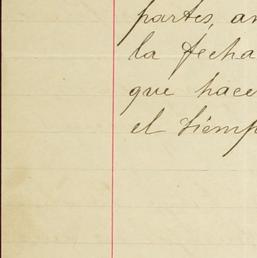 partes, an
la fecha
que hace
el tiemp